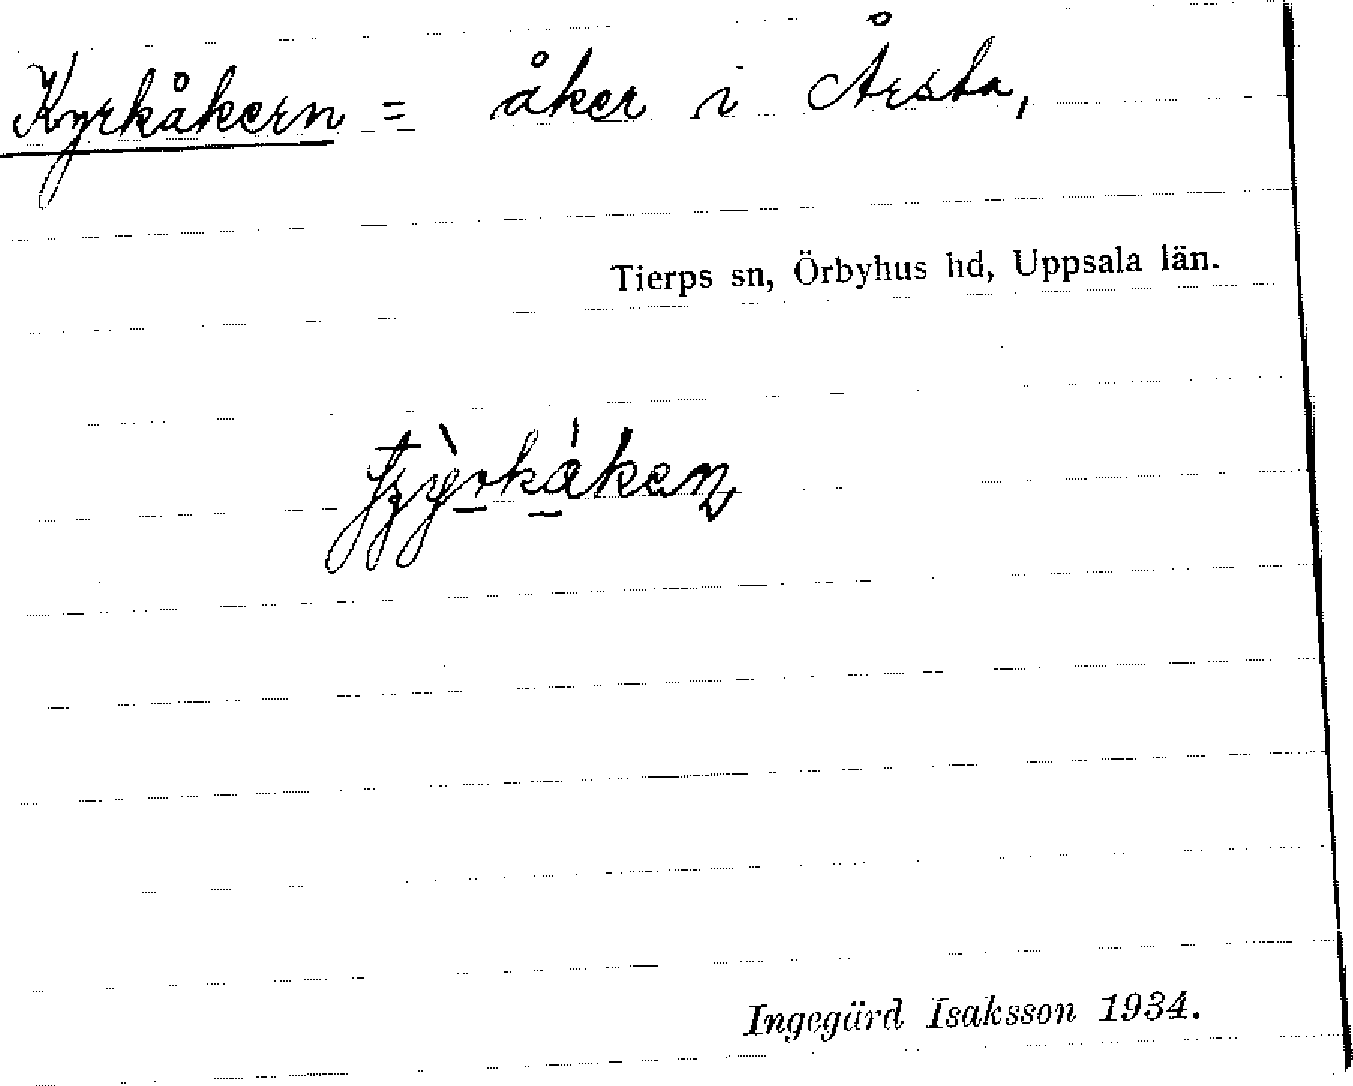 Kyrkåkern = åker i Årsta,
Tierps sn, Örbyhus hd, Uppsala län.
Ingegärd Isaksson 1934.